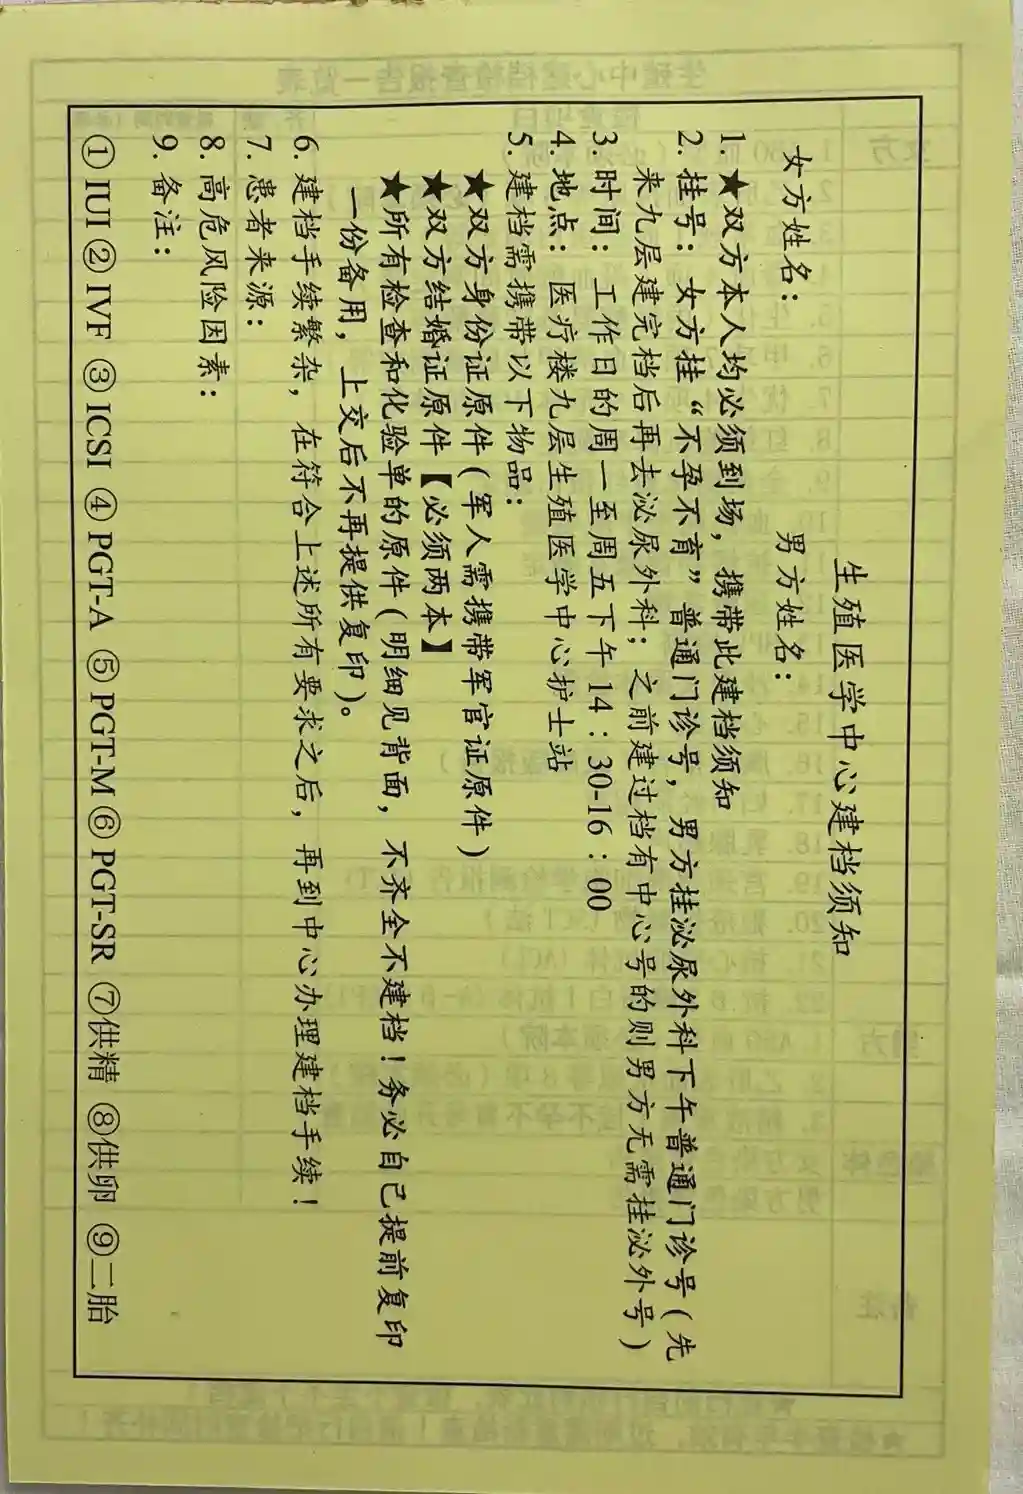 生殖医学中心建档须知
女方姓名： 男方姓名：
1.★双方本人均必须到场，携带此建档须知
2.挂号：女方挂“不孕不育”普通门诊号，男方挂泌尿外科下午普通门诊号（先
来九层建完档后再去泌尿外科；之前建过档有中心号的则男方无需挂泌外号）
3.时间：工作日的周一至周五下午14：30-16：00
4.地点：医疗楼九层生殖医学中心护士站
5.建档需携带以下物品：
★双方身份证原件（军人需携带军官证原件）
★双方结婚证原件【必须两本】
★所有检查和化验单的原件（明细见背面，不齐全不建档！务必自己提前复印
一份备用，上交后不再提供复印）。
6.建档手续繁杂，在符合上述所有要求之后，再到中心办理建档手续！
7.患者来源：
8.高危风险因素：
9.备注：
①IUI ②IVF ③ICSI ④PGT-A ⑤PGT-M ⑥PGT-SR ⑦供精 ⑧供卵 ⑨二胎